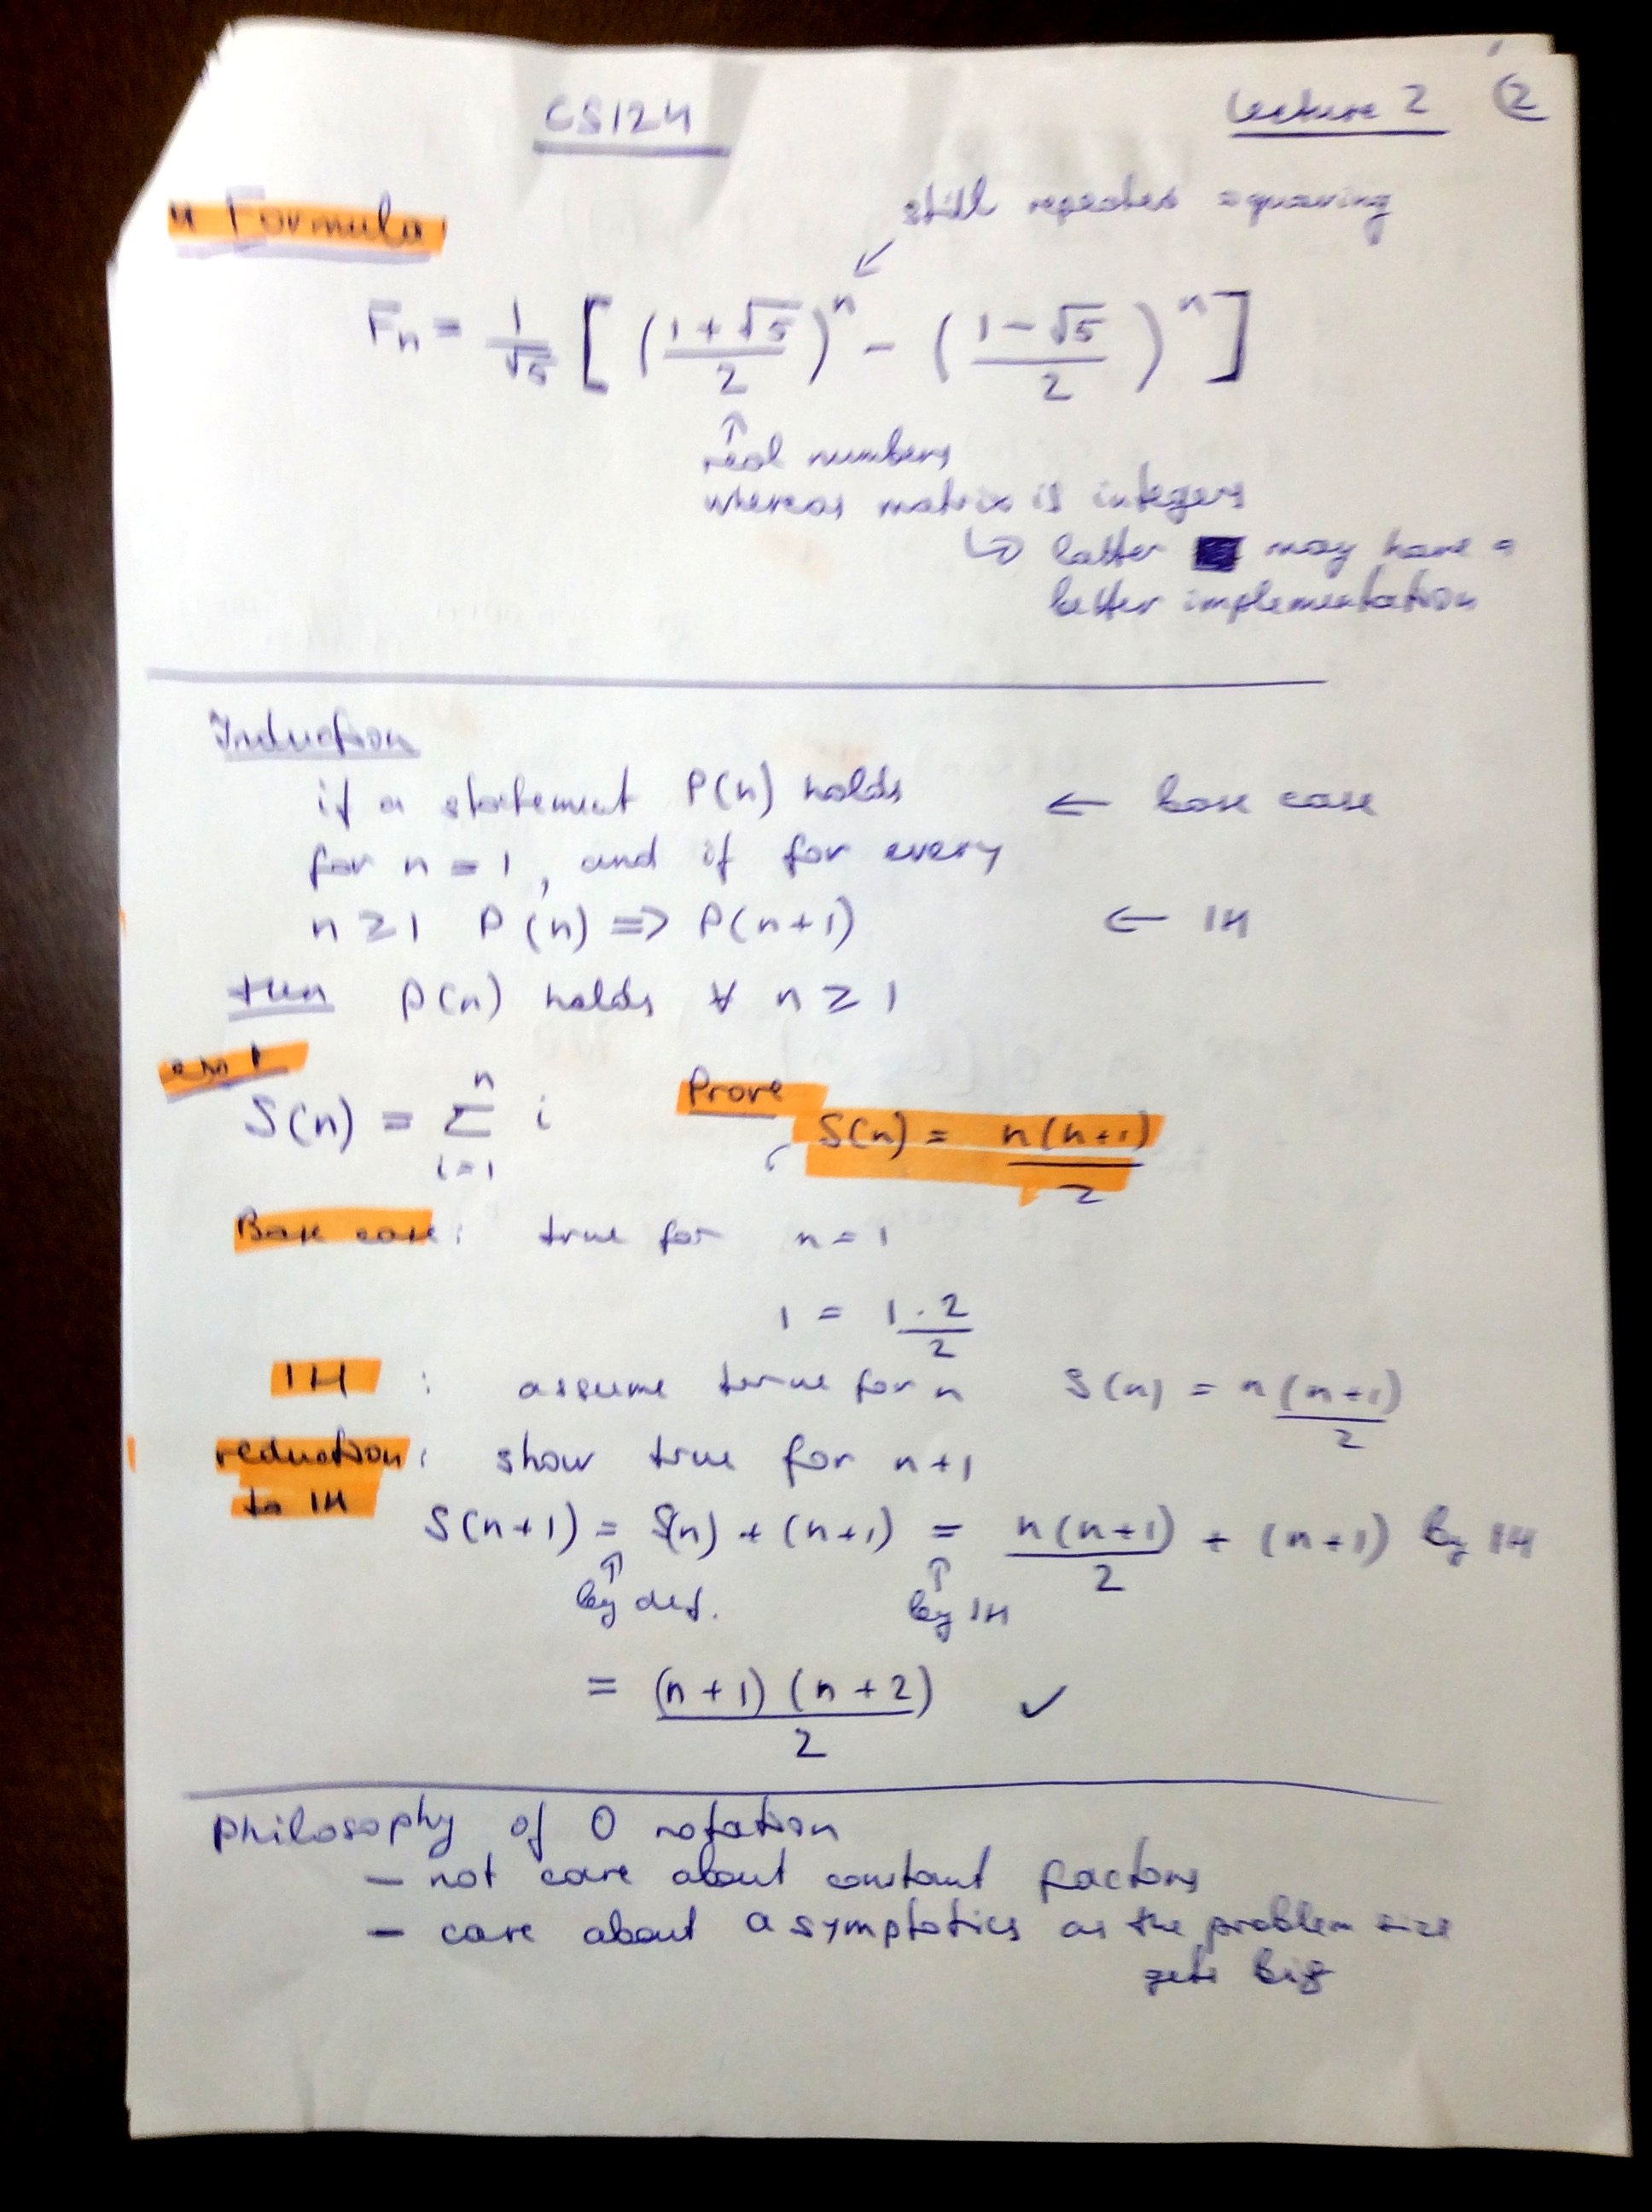 CS124
Lecture 2 (2
" Formula:
still repeated squaring
↙
Fn = 1/√5 [ ((1+√5)/2)^n - ((1-√5)/2)^n ]
↑
real numbers
whereas matrix is integers
↳ latter may have a
better implementation
Induction
if a statement P(n) holds ← base case
for n = 1, and if for every
n ≥ 1 P(n) => P(n+1) ← IH
then P(n) holds ∀ n ≥ 1
ex 1
S(n) = Σ_{i=1}^{n} i Prove
S(n) = n(n+1)/2
Base case: true for n = 1
1 = 1·2/2
IH : assume true for n S(n) = n(n+1)/2
reduction: show true for n+1
to IH
S(n+1) = S(n) + (n+1) = n(n+1)/2 + (n+1) by IH
↑ ↑
by def. by IH
= (n+1)(n+2)/2 ✓
Philosophy of O notation
- not care about constant factors
- care about asymptotics as the problem size
gets big